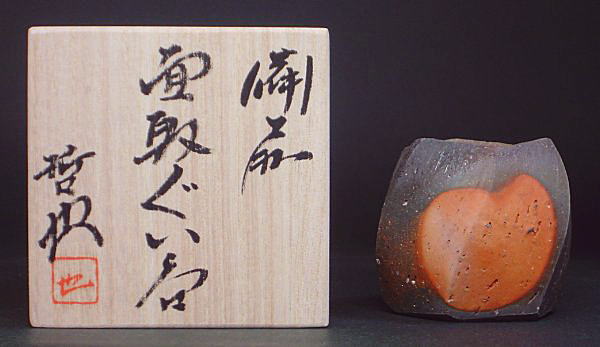 備前
面取ぐい呑
哲
也